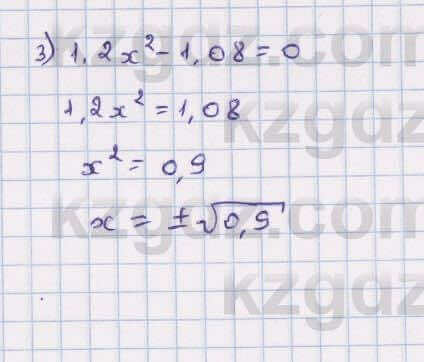 3) 1,2x² - 1,08 = 0
1,2x² = 1,08
x² = 0,9
x = ±√0,9
kzgdz.com
kzgdz
kzgdz.com
kzgdz